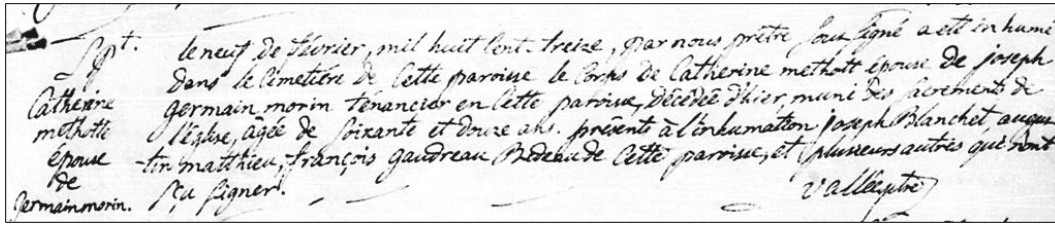 Spt.
Catherine
methotte
épouse
de
germain morin.
le neuf de février, mil huit cent treize, par nous prêtre sous signé a eté in humé
dans le Cimetière de Cette paroisse le Corps de Catherine methott épouse de joseph
germain morin ténancier en Cette paroisse, Décédée d'hier, muni des sacrements de
l'église, âgée de soixante et douze ans. présents à l'inhumation Joseph Blanchet, augus
tin matthieu, françois gaudreau Bedeau de Cette paroisse, et plusieurs autres qui n'ont
sçu signer.
Vallée ptre